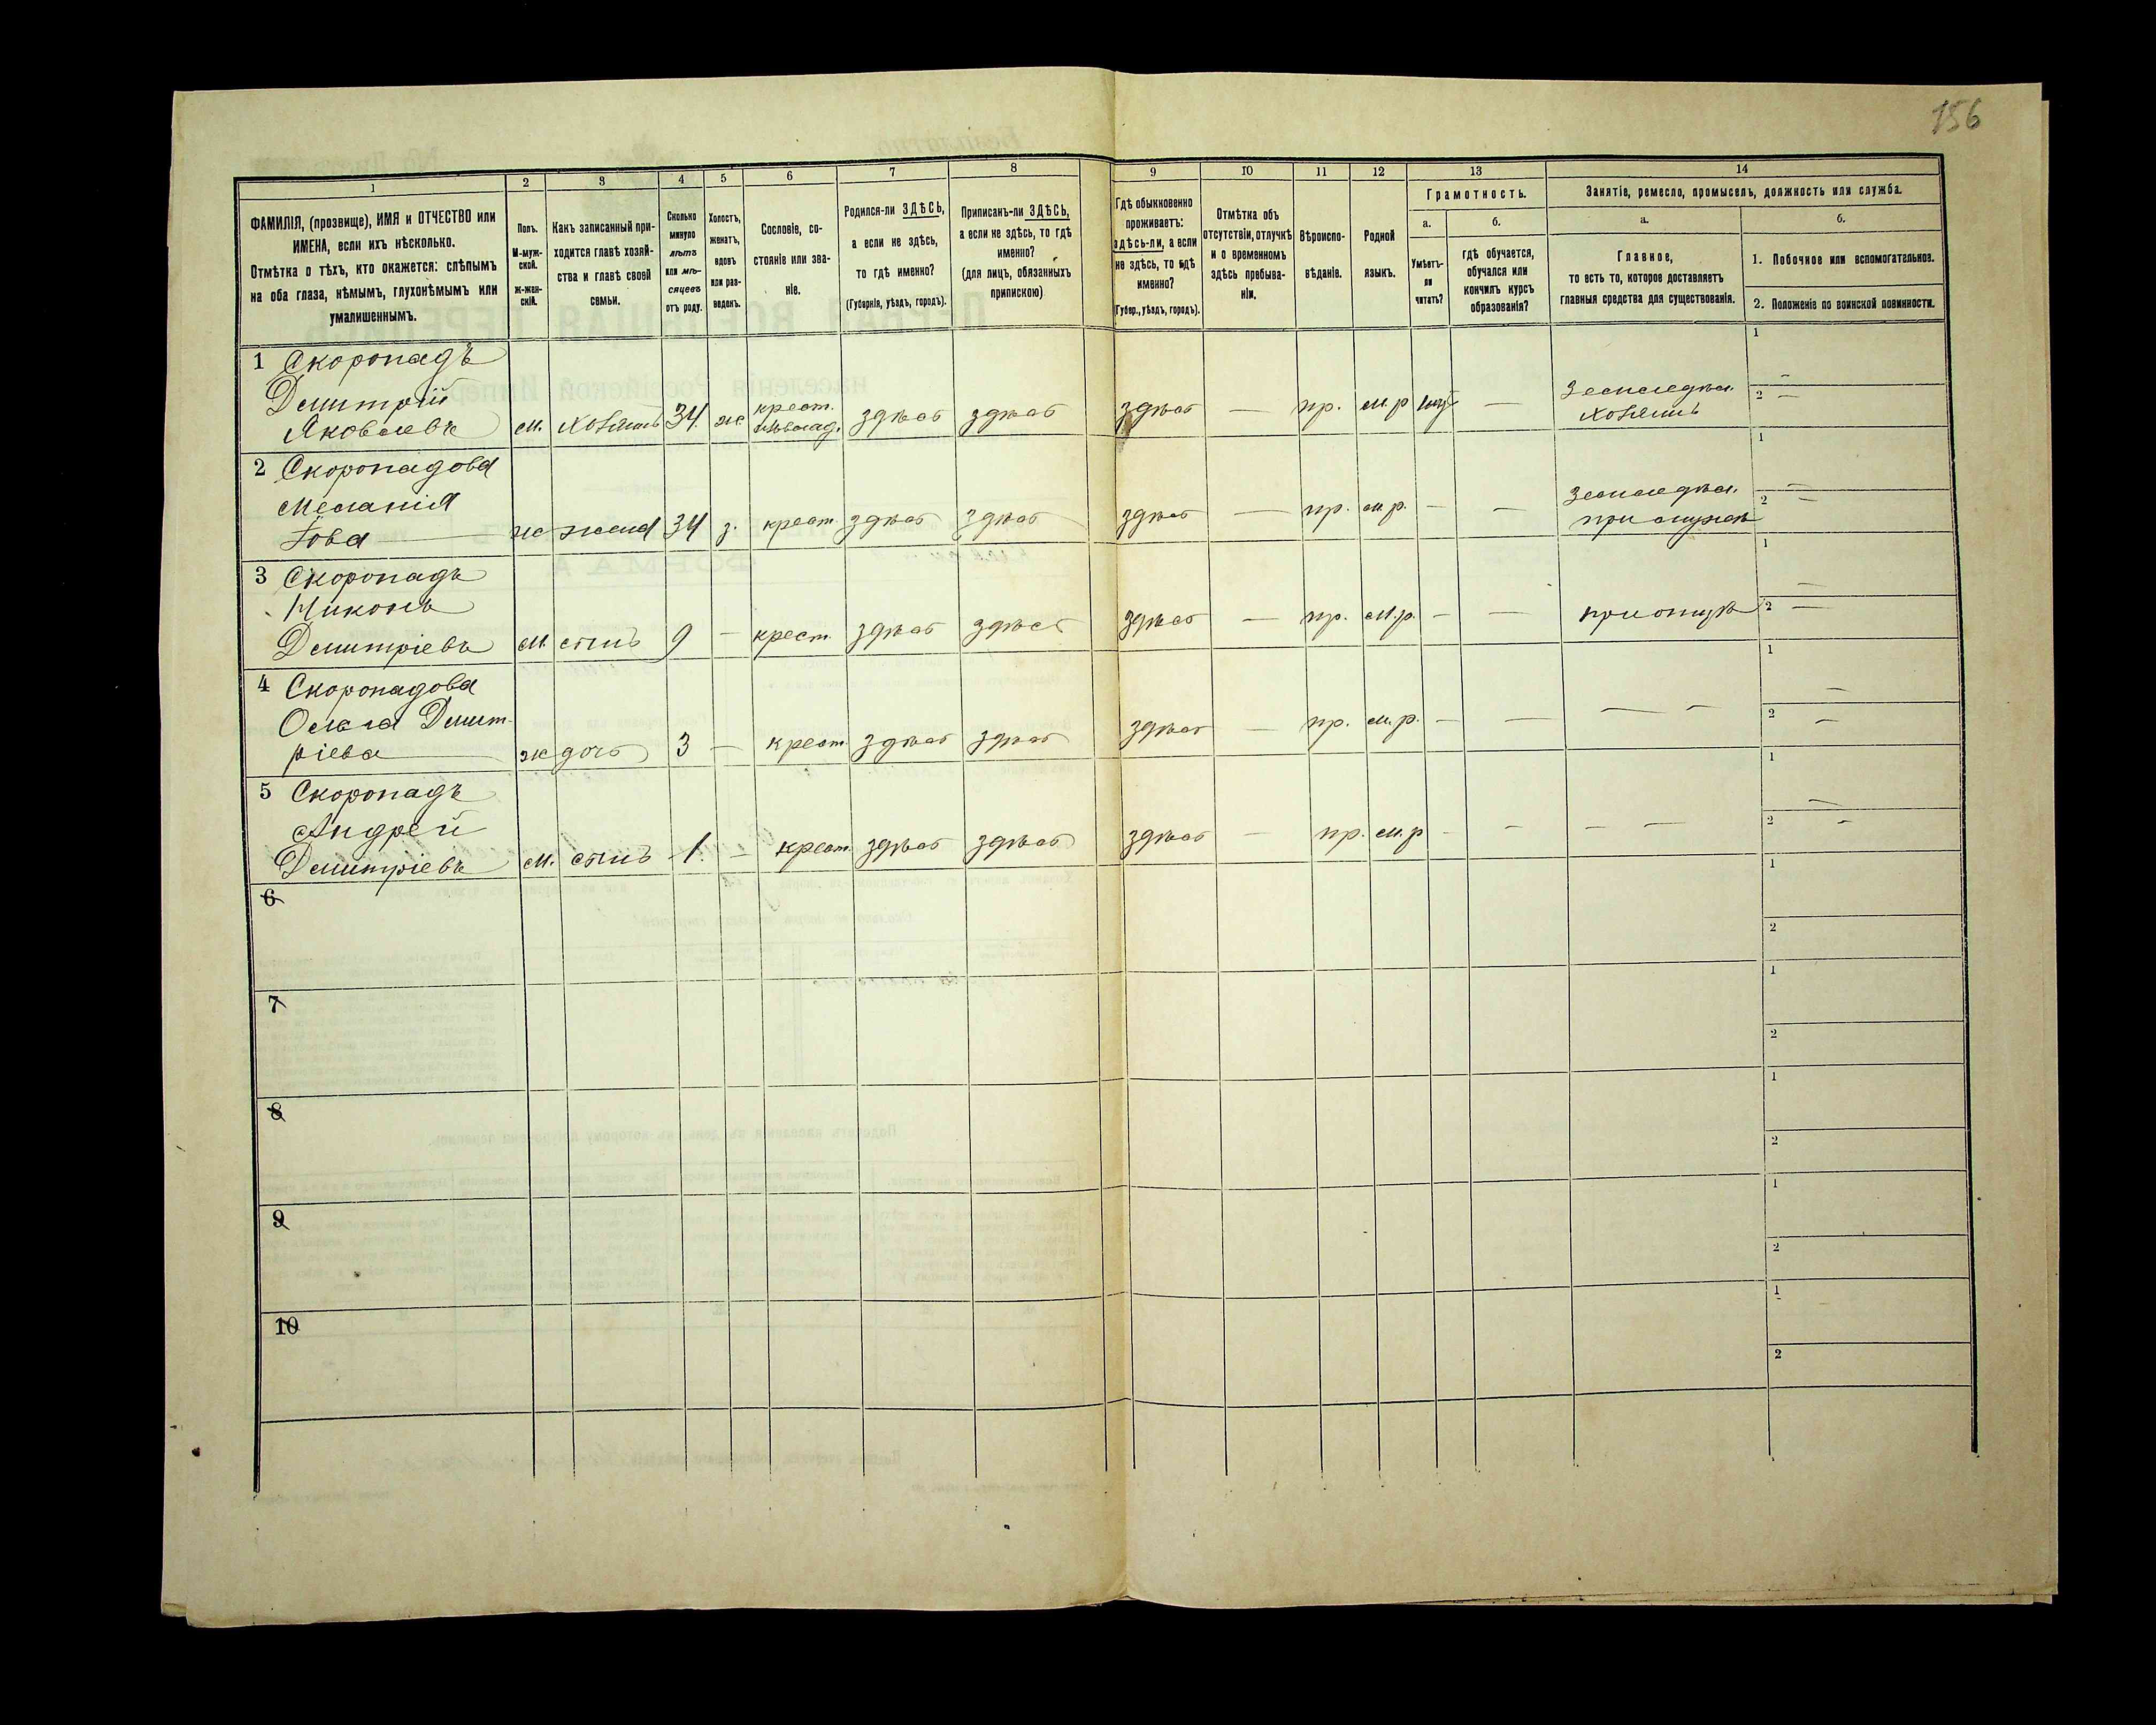 156
1
2
3
4
5
6
7
8
9
10
11
12
13
14
ФАМИЛІЯ, (прозвище), ИМЯ и ОТЧЕСТВО или
ИМЕНА, если ихъ нѣсколько.
Отмѣтка о тѣхъ, кто окажется: слѣпымъ
на оба глаза, нѣмымъ, глухонѣмымъ или
умалишеннымъ.
Полъ.
М-муж-
ской.
Ж-жен-
скій.
Какъ записанный при-
ходится главѣ хозяй-
ства и главѣ своей
семьи.
Сколько
минуло
лѣтъ
или мѣ-
сяцевъ
отъ роду.
Холостъ,
женатъ,
вдовъ
или раз-
веденъ.
Сословіе, со-
стояніе или зва-
ніе.
Родился-ли ЗДѢСЬ,
а если не здѣсь,
то гдѣ именно?
(Губернія, уѣздъ, городъ).
Приписанъ-ли ЗДѢСЬ,
а если не здѣсь, то гдѣ
именно?
(для лицъ, обязанныхъ
припискою)
Гдѣ обыкновенно
проживаетъ:
здѣсь-ли, а если
не здѣсь, то гдѣ
именно?
(Губер., уѣздъ, городъ).
Отмѣтка объ
отсутствіи, отлучкѣ
и о временномъ
здѣсь пребыва-
ніи.
Вѣроиспо-
вѣданіе.
Родной
языкъ.
Грамотность.
а.
Умѣетъ-
ли
читать?
б.
гдѣ обучается,
обучался или
кончилъ курсъ
образованія?
Занятіе, ремесло, промыселъ, должность или служба.
а.
Главное,
то есть то, которое доставляетъ
главныя средства для существованія.
б.
1. Побочное или вспомогательное.
2. Положеніе по воинской повинности.
1 Скоропадъ
Дмитрій
Яковлевъ м. хозяинъ 34 ж крест. здѣсь здѣсь здѣсь — пр. м.р — земледѣл.
хозяинъ
1 —
2 —
2 Скоропадова
Меланія
Іова ж жена 34 з. крест. здѣсь здѣсь здѣсь — пр. м.р. — — земледѣл.
при мужѣ
1 —
2 —
3 Скоропадъ
Никонъ
Дмитріевъ м. сынъ 9 — крест. здѣсь здѣсь здѣсь — пр. м.р. — — при отцѣ
1 —
2 —
4 Скоропадова
Ольга Дмит-
ріева ж дочь 3 — крест. здѣсь здѣсь здѣсь — пр. м.р. — — — —
1 —
2 —
5 Скоропадъ
Андрей
Дмитріевъ м. сынъ 1. — крест. здѣсь здѣсь здѣсь — пр. м.р — — — —
1 —
2 —
6
1
2
7
1
2
8
1
2
9
1
2
10
1
2